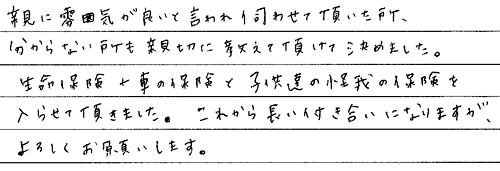 親に雰囲気が良いと言われ伺わせて頂いた所、
分からない所も親切に教えて頂けて決めました。
生命保険+車の保険と子供達の怪我の保険を
入らせて頂きました。これから長い付き合いになりますが、
よろしくお願いします。